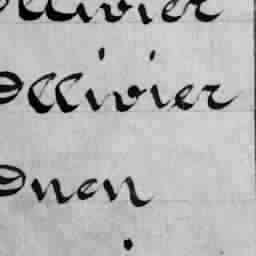 Ollivier
Ollivier
Onen